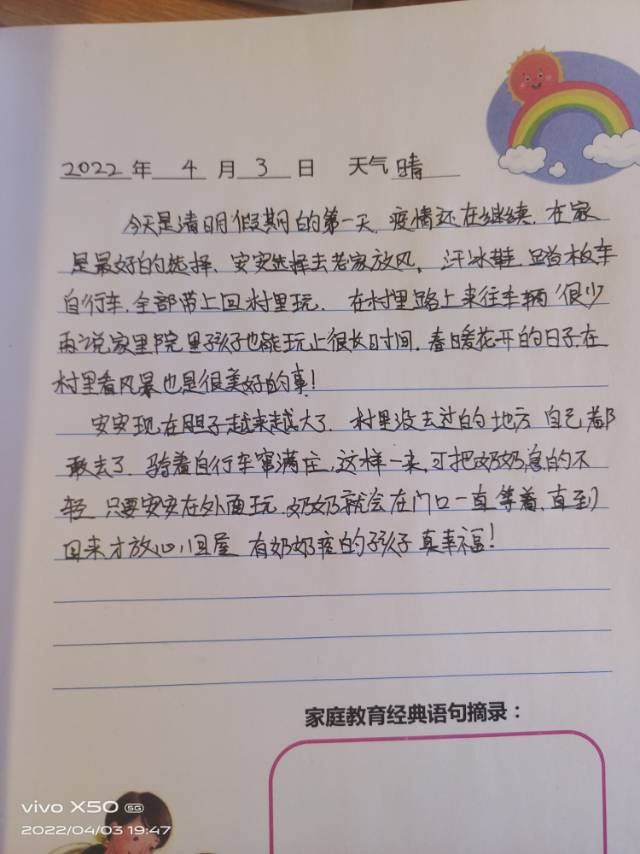 2022年 4 月 3 日 天气 晴
今天是清明假期的第一天,疫情还在继续,在家
是最好的选择,安安选择去老家放风,汗冰鞋,踏板车
自行车,全部带上回村里玩,在村里路上来往车辆很少
再说家里院里孩子也能玩上很长时间,春暖花开的日子在
村里看风景也是很美好的事!
安安现在胆子越来越大了,村里没去过的地方自己都
敢去了,骑着自行车窜满庄,这样一来,可把奶奶急的不
轻,只要安安在外面玩,奶奶就会在门口一直等着,直到
回来才放心回屋,有奶奶疼的孩子真幸福!
家庭教育经典语句摘录:
vivo X50 5G
2022/04/03 19:47